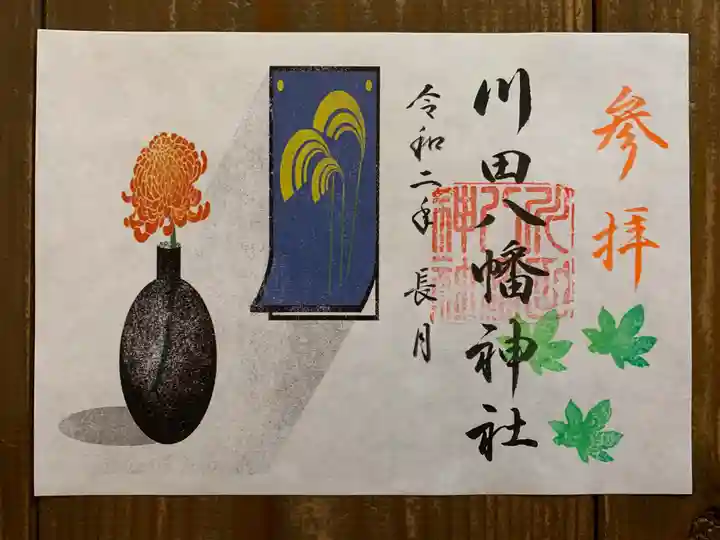 参拝
川田八幡神社
令和二年 長月